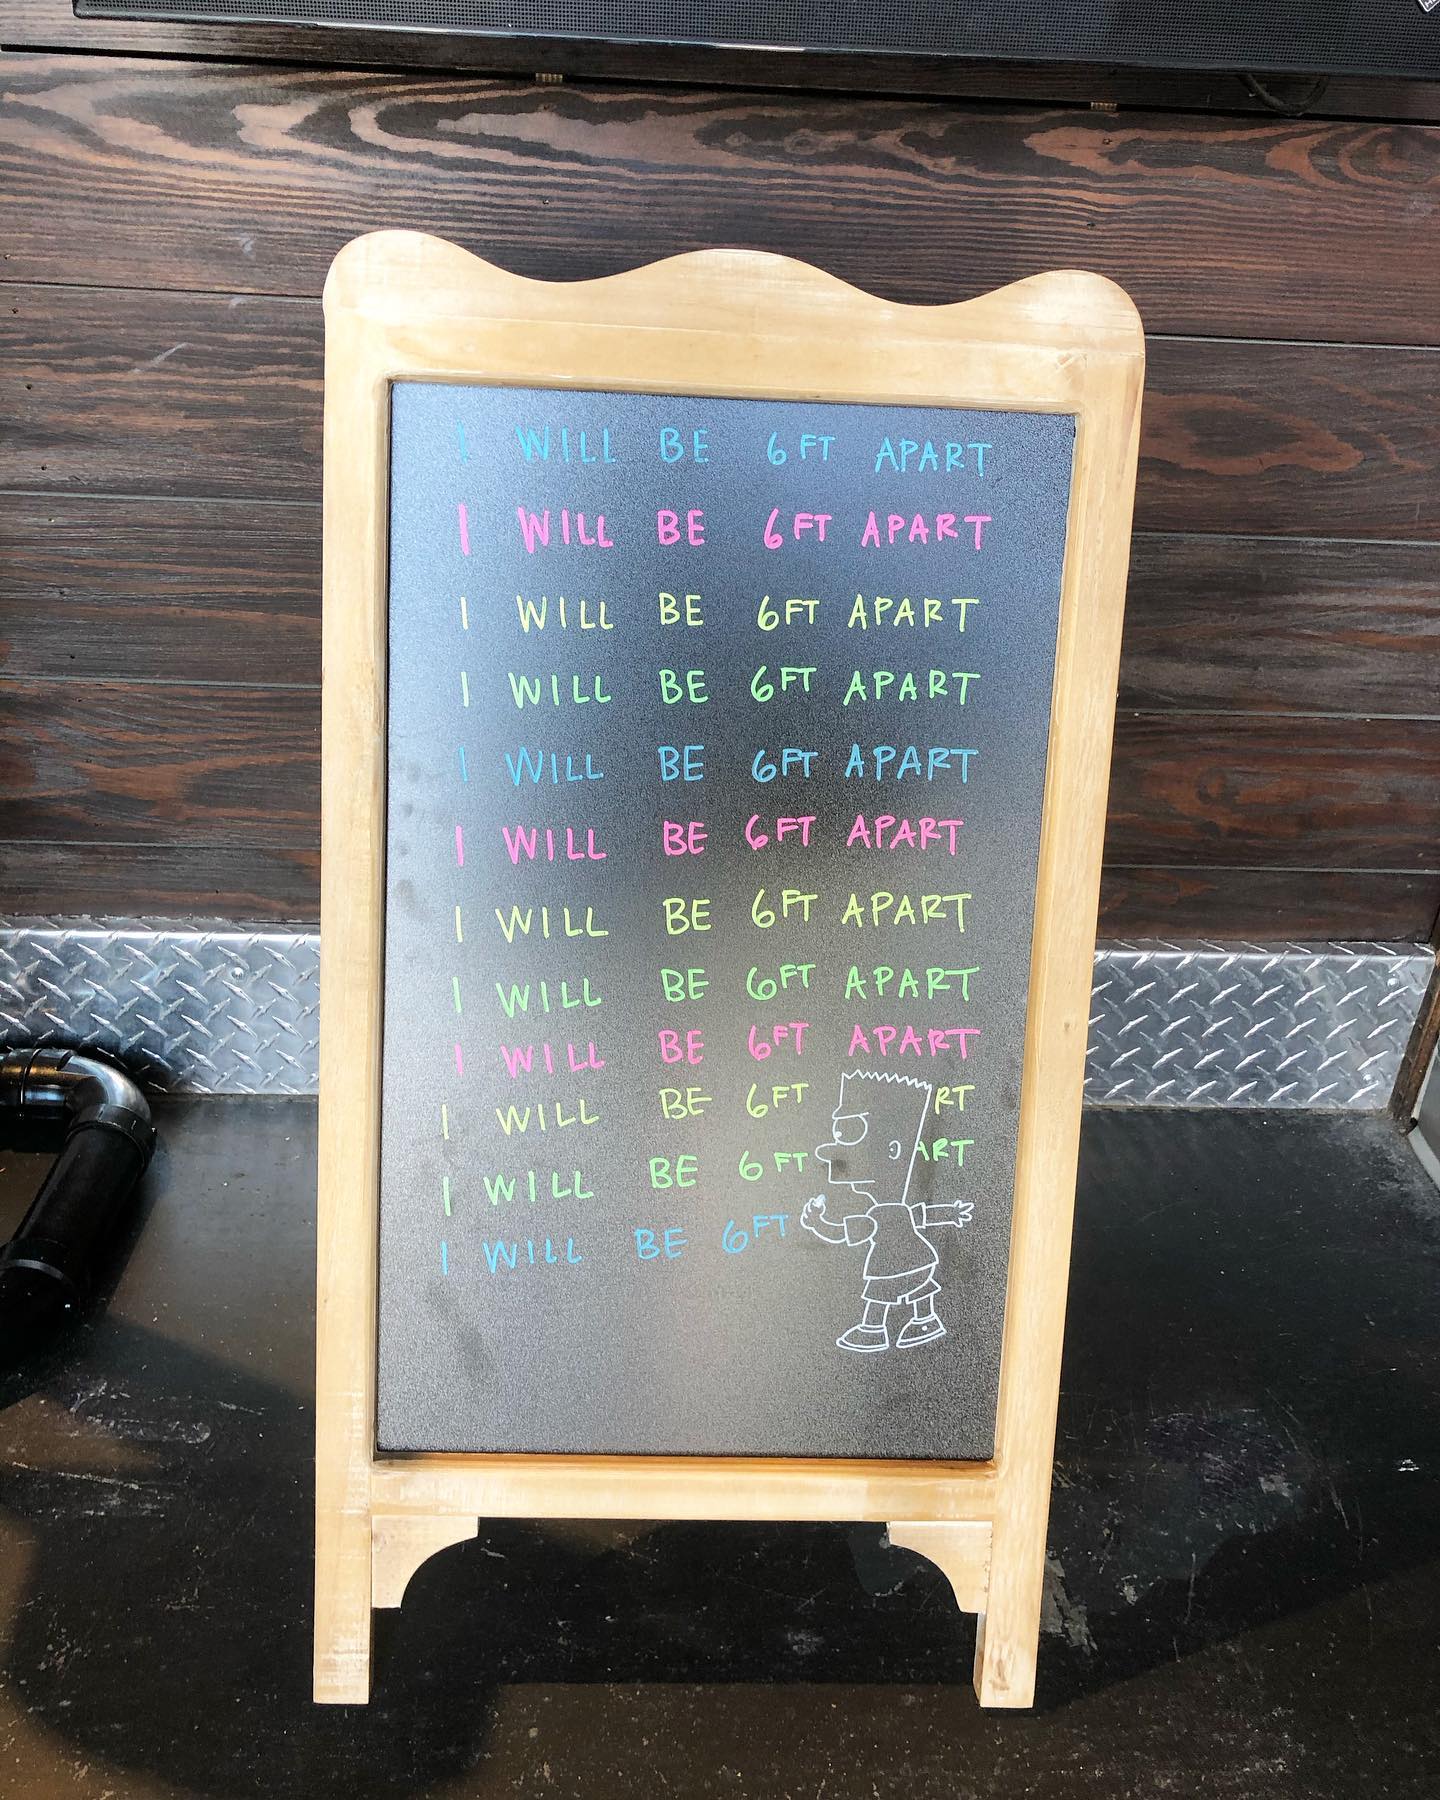 I WILL BE 6FT APART
I WILL BE 6FT APART
I WILL BE 6FT APART
I WILL BE 6FT APART
I WILL BE 6FT APART
I WILL BE 6FT APART
I WILL BE 6FT APART
I WILL BE 6FT APART
I WILL BE 6FT APART
I WILL BE 6FT RT
I WILL BE 6FT ART
I WILL BE 6FT